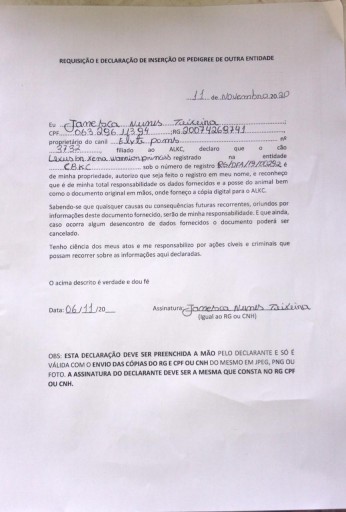 REQUISIÇÃO E DECLARAÇÃO DE INSERÇÃO DE PEDIGREE DE OUTRA ENTIDADE
11 de Novembro 2020
Eu Janesca Nunes Teixeira
CPF 063.296.113 94 ;RG 20074269741
proprietário do canil Elyte poms nº
3732, filiado ao ALKC, declaro que o cão
Xena warrior princess registrado na entidade
CBKC sob o número de registro é
de minha propriedade, autorizo que seja feito o registro em meu nome, e reconheço
que é de minha total responsabilidade os dados fornecidos e a posse do animal bem
como o documento original em mãos, onde forneço a cópia digital para o ALKC.
Sabendo-se que quaisquer causas ou consequências futuras recorrentes, oriundos por
informações deste documento fornecido, serão de minha responsabilidade. E que ainda,
caso ocorra algum desencontro de dados fornecidos o documento poderá ser
cancelado.
Tenho ciência dos meus atos e me responsabilizo por ações cíveis e criminais que
possam recorrer sobre as informações aqui declaradas.
O acima descrito é verdade e dou fé
Data: 06/11/20 Assinatura: Janesca Nunes Teixeira
(Igual ao RG ou CNH)
OBS: ESTA DECLARAÇÃO DEVE SER PREENCHIDA A MÃO PELO DECLARANTE E SÓ É
VÁLIDA COM O ENVIO DAS CÓPIAS DO RG E CPF OU CNH DO MESMO EM JPEG, PNG OU
FOTO. A ASSINATURA DO DECLARANTE DEVE SER A MESMA QUE CONSTA NO RG CPF
OU CNH.